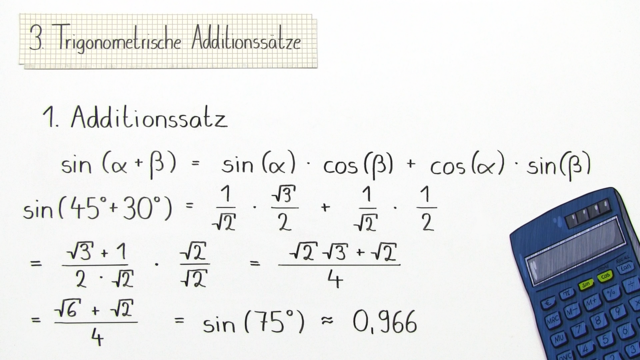 3. Trigonometrische Additionssätze
1. Additionssatz
sin (α + β) = sin (α) · cos (β) + cos (α) · sin (β)
sin (45° + 30°) = 1/√2 · √3/2 + 1/√2 · 1/2
= (√3 + 1)/(2 · √2) · √2/√2 = (√2 √3 + √2)/4
= (√6 + √2)/4 = sin (75°) ≈ 0,966